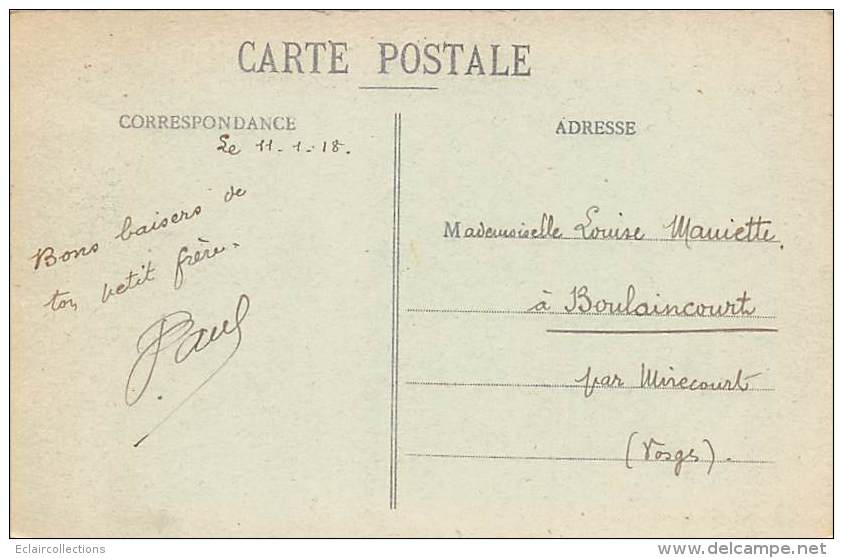 CARTE POSTALE
CORRESPONDANCE
Le 11-1-18.
Bons baisers de
ton petit frère.
Paul
ADRESSE
Mademoiselle Louise Mauiette.
à Boulaincourt
par Mirecourt
(Vosges).
Eclaircollections
www.delcampe.net